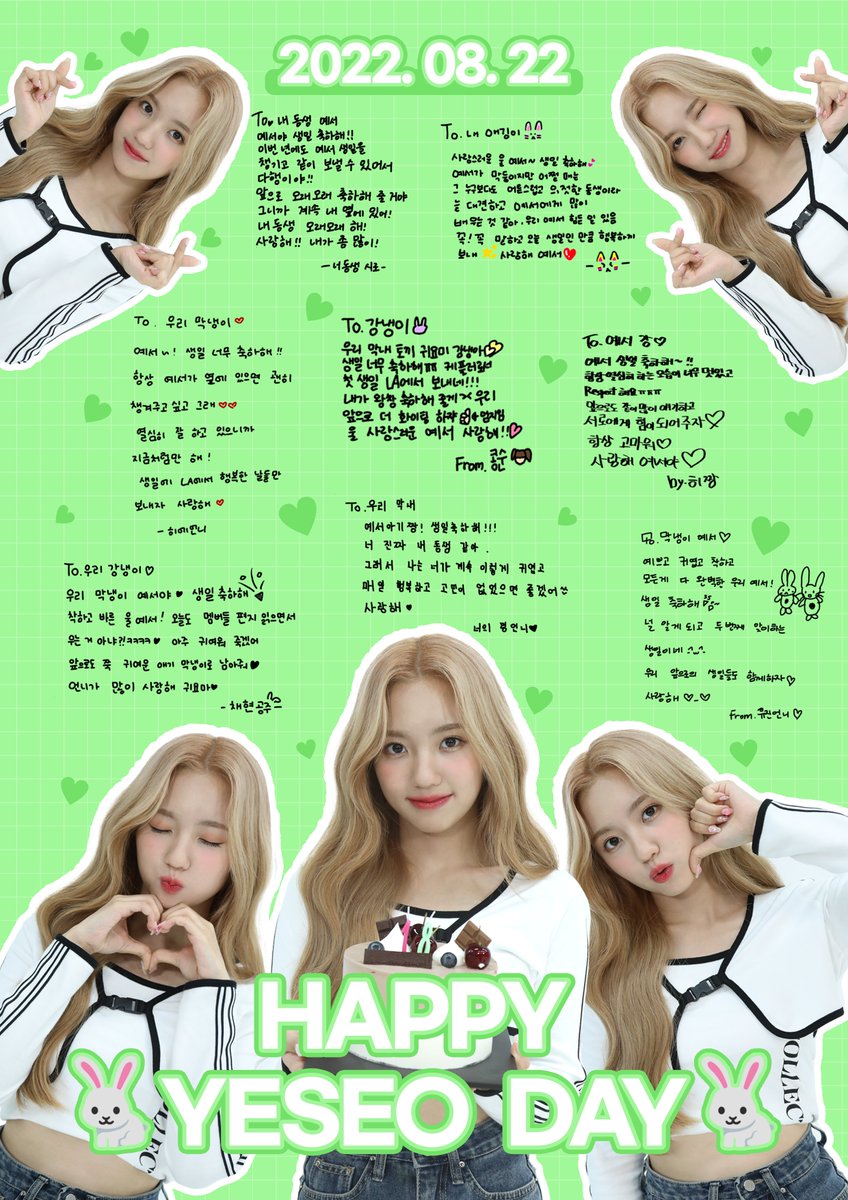 2022. 08. 22
To. 내 동생 예서
예서야 생일 축하해!!
이번 년에도 예서 생일을
챙기고 같이 보낼 수 있어서
다행이야!!
앞으로 오래오래 축하해 줄 거야
그니까 계속 내 옆에 있어!
내 동생 오래오래 해!
사랑해!! 내가 좀 많이!
- 너 동생 시로 -
To. 내 애깅이
사랑스러운 울 예서~ 생일 축하해
예서가 막둥이지만 어쩔 때는
그 누구보다도 어른스럽고 의젓한 동생이라
늘 대견하고 예서에게 많이
배우는 것 같아. 우리 예서 힘든 일 있음
꼭! 꼭 말하고 오늘 생일인 만큼 행복하게
보내 사랑해 예서
To. 우리 막냉이
예서~! 생일 너무 축하해!!
항상 예서가 옆에 있으면 괜히
챙겨주고 싶고 그래
열심히 잘 하고 있으니까
지금처럼만 해!
생일에 LA에서 행복한 날들만
보내자 사랑해
- 히에언니
To. 강냉이
우리 막내 토끼 귀요미 강냉아
생일 너무 축하해ㅠㅠ 케플러로서
첫 생일 LA에서 보내네!!!
내가 왕창 축하해 줄게 >< 우리
앞으로 더 화이팅 하자
울 사랑스러운 예서 사랑해!!
From.
To. 예서 쭝♡
예서 생일 축하해~!!
항상 열심히 하는 모습이 너무 멋있고
Respect 해요ㅠㅠㅠ
앞으로도 같이 많이 얘기하고
서로에게 힘이 되어주자♡
항상 고마워♡
사랑해 예서야♡
by.히짱
To. 우리 막내
예서아기짱! 생일축하해!!!
너 진짜 내 동생 같아.
그래서 나는 너가 계속 이렇게 귀엽고
매일 행복하고 고민이 없었으면 좋겠어
사랑해♥
너의 언니♥
To. 우리 강냉이♡
우리 막냉이 예서야♥ 생일 축하해
착하고 바른 울 예서! 오늘도 멤버들 편지 읽으면서
우는 거 아냐?!ㅋㅋㅋㅋ♥ 아주 귀여워 죽겠어
앞으로도 쭉 귀여운 애기 막냉이로 남아줘♥
언니가 많이 사랑해 귀요마♥
- 채현공주
To. 막냉이 예서♡
예쁘고 귀엽고 착하고
모든게 다 완벽한 우리 예서!
생일 축하해
널 알게 되고 두번째 맞이하는
생일이네
우리 앞으로의 생일들도 함께하자♡
사랑해♡_♡
From.유진언니♡
HAPPY
YESEO DAY
COLLEC
OLLEC